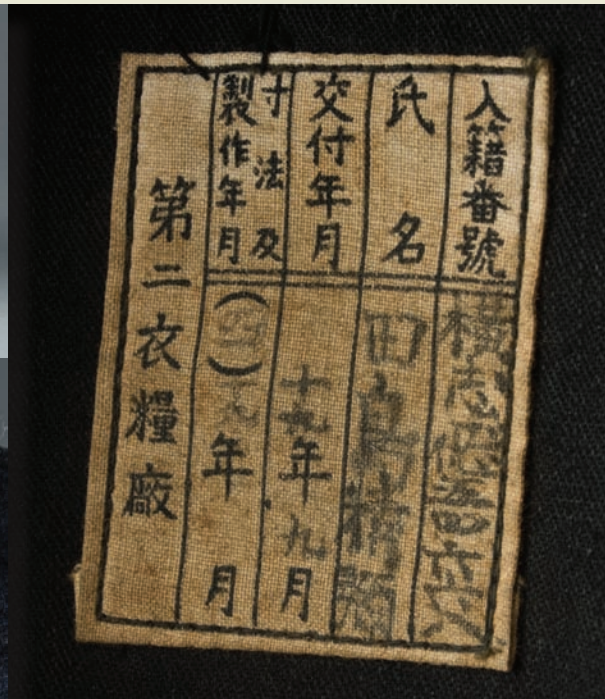 入籍番號
横志
氏名
田島
交付年月
十九年九月
寸法及
製作年月
( )十九年 月
第二衣糧廠